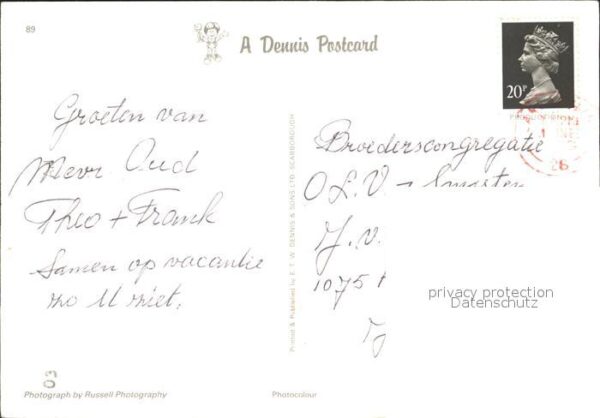 89
A Dennis Postcard
20P
Groeten van
Mevr. Oud
Theo + Frank
Samen op vacantie
zo U ziet.
Broederscongregatie
O L V - Smarten
J. V.
1075
privacy protection
Datenschutz
Printed & Published by E. T. W. DENNIS & SONS LTD, SCARBOROUGH
03
Photograph by Russell Photography
Photocolour